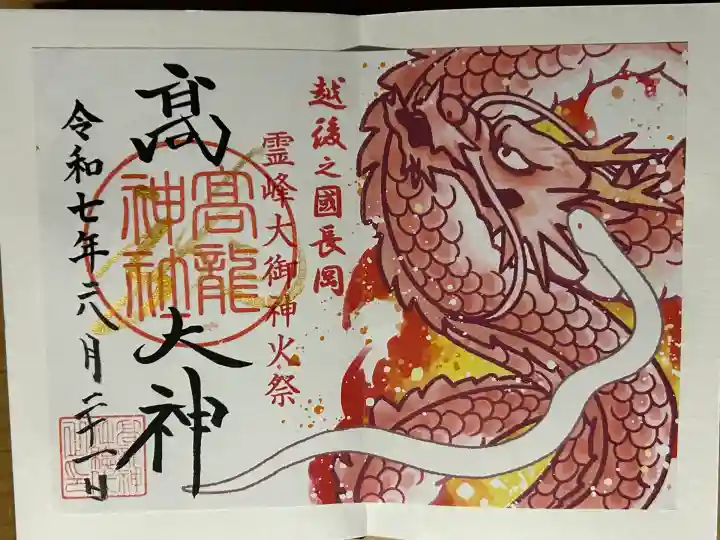 越後之國長岡
霊峰大御神火祭
髙大神
髙龍
神社
令和七年六月二十一日